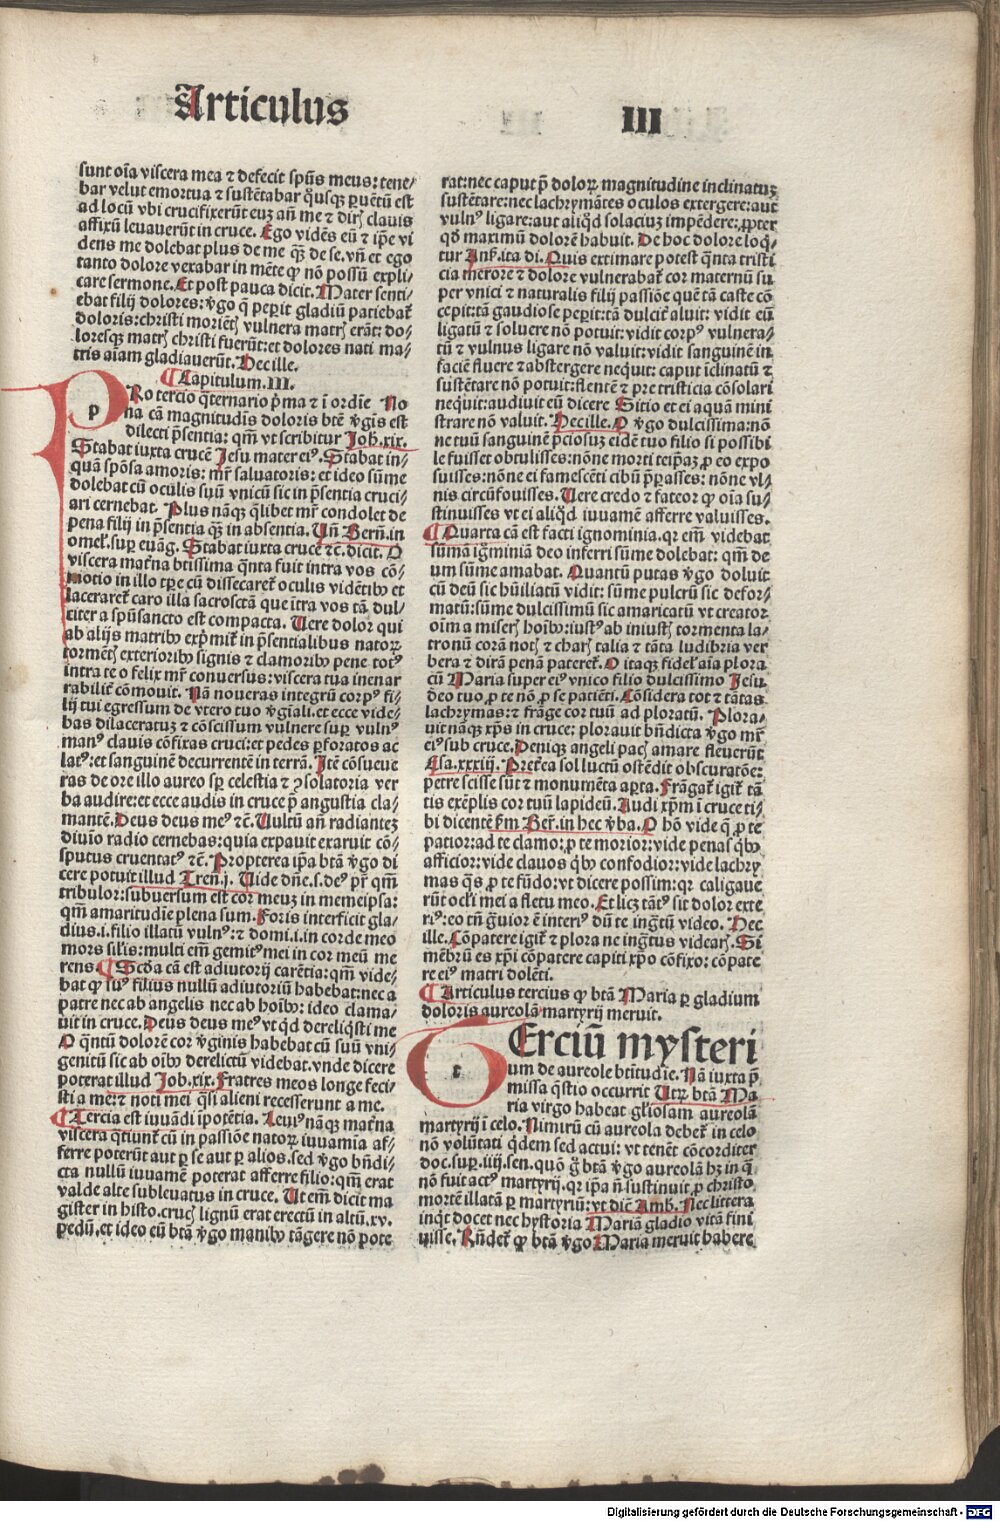 Articulus
III
sunt oīa viscera mea ⁊ defecit spūs meus: tene/
bar velut emortua ⁊ sustētabar q̇usqꝫ ꝑuētū est
ad locū vbi crucifixerūt euꝫ añ me ⁊ dirȝ clauis
affixū leuauerūt in cruce. Ego vidēs eū ⁊ ip̄e vi
dens me dolebat plus de me qꝫ̄ de se. vñ et ego
tanto dolore vexabar in mēte ꝙ nō possū expli-
care sermone. Et post pauca dicit. Mater senti-
ebat filij dolores: v̾go q̄ peꝑit gladiū patiebat᷑
doloris: christi moriētȝ vulnera matrȝ erāt: do-
loresqꝫ matrȝ christi fuerūt: et dolores nati ma-
tris aīam gladiauerūt. Hec ille.
Capitulum. III.
p
PRo tercio q̄ternario p̄ma ⁊ ī ordīe No
na cā magnitudīs doloris btē v̾gis est
dilecti p̄sentia: qm̄ vt scribitur Joh̄. xix.
Stabat iuxta crucē Jesu mater eiꝰ. Stabat in-
quā spōsa amoris: mr̄ saluatoris: et ideo sūme
dolebat cū oculis suū vnicū sic in p̄sentia cruci-
ari cernebat. Plus nāqꝫ q̄libet mr̄ condolet de
pena filij in p̄sentia qꝫ̄ in absentia. Uñ Berñ. in
omel̄. suꝑ euāg. Stabat iuxta crucē ⁊c̄. dicit. O
viscera mat̾na btissima q̄nta fuit intra vos cō-
motio in illo tp̄e cū dissecaret᷑ oculis vidētibꝰ et
lacerаret᷑ caro illa sacrosctā que īt̾a vos tā dul-
citer a spūsancto est compacta. Uere dolor qui
ab alijs matribꝰ exp̄mit᷑ in p̄sentialibus natoꝝ
tormētȝ exterioribꝰ signis ⁊ clamoribꝰ pene totꝰ
intra te o felix mr̄ conuersus: viscera tua inenar
rabilit̾ cōmouit. Nā noueras integrū corpꝰ fi-
lij tui egressum de vtero tuo v̾giali. et ecce vide-
bas dilaceratuꝫ ⁊ cōscissum vulnere suꝑ vulnꝰ
manꝰ clauis cōfixas cruci: et pedes ꝑforatos ac
latꝰ: et sanguinē decurrentē in terrā. Jtē cōsueue
ras de ore illo aureo sꝑ celestia ⁊ ꝯsolatoria ver
ba audire: et ecce audis in cruce p̄ angustia cla-
mantē. Deus deus meꝰ ⁊c̄. Uultū añ radianteꝫ
diuīo radio cernebas: quia expauit exaruit cō-
sputus cruentatꝰ ⁊c̄. Propterea ip̄a btā v̾go di
cere potuit illud Treñ. j. Uide dñe. s. deꝰ pr̄ qm̄
tribulor: subuersum est cor meuꝫ in memeipsa:
qm̄ amaritudīe plena sum. Foris interficit gla-
dius. i. filio illatū vulnꝰ: ⁊ domi. i. in corde meo
mors sil̄is: multi em̄ gemitꝰ mei in cor meū me
rens. Scd̄a cā est adiutorij carētia: qm̄ vide-
bat ꝙ suꝰ filius nullū adiutoriū habebat: nec a
patre nec ab angelis nec ab hoībꝰ: ideo clama-
uit in cruce. Deus deus meꝰ vt qd̄ dereliq̄sti me
O q̄ntū dolorē cor v̾ginis habebat cū suū vni-
genitū sic ab oībꝰ derelictū videbat. vnde dicere
poterat illud Job. xix. Fratres meos longe feci-
sti a me: ⁊ noti mei q̄si alieni recesserunt a me.
Tercia est iuuādi īpotētia. Leuiꝰ nāqꝫ mat̾na
viscera q̄tiunt᷑ cū in passiōe natoꝝ iuuamīa af-
ferre poterūt aut ꝑ se aut ꝑ alios. sed v̾go bn̄di-
cta nullū iuuamē poterat afferre filio: qm̄ erat
valde alte subleuatus in cruce. Ut em̄ dicit ma
gister in histo. crucȝ lignū erat erectū in altū. xv.
pedū. et ideo eū btā v̾go manibꝰ tāgere nō pote
rat: nec caput p̄ doloꝝ magnitudine inclinatuꝫ
sustētare: nec lachrymātes oculos extergere: aut
vulnꝰ ligare: aut aliqd̄ solaciuꝫ impēdere: ꝓpter
qd̄ maximū dolorē habuit. De hoc dolore loq̄-
tur Anß. ita di. Quis extimare potest q̄nta tristi
cia merore ⁊ dolore vulnerabat᷑ cor maternū su
per vnici ⁊ naturalis filij passiōe quē tā caste cō
cepit: tā gaudiose peꝑit: tā dulcit̾ aluit: vidit eū
ligatū ⁊ soluere nō potuit: vidit corpꝰ vulnera-
tū ⁊ vulnus ligare nō valuit: vidit sanguinē in
faciē fluere ⁊ abstergere nequit: caput īclinatū ⁊
sustētare nō potuit: flentē ⁊ pre tristicia cōsolari
nequit: audiuit eū dicere Sitio et ei aquā mini
strare nō valuit. Hec ille. O v̾go dulcissima: nō
ne tuū sanguinē p̄ciosuꝫ eidē tuo filio si possibi
le fuisset obtulisses: nōne morti teip̄aꝫ ꝓ eo expo
suisses: nōne ei famescēti cibū p̄ꝑasses: nōne vl-
nis circūfouisses. Uere credo ⁊ fateor ꝙ oīa su-
stinuisses vt ei aliqd̄ iuuamē afferre valuisses.
Quarta cā est facti ignominia. qꝛ em̄ videbat
sūmā igm̄iniā deo inferri sūme dolebat: qm̄ de
um sūme amabat. Quantū putas v̾go doluit
cū deū sic hūiliatū vidit: sūme pulcrū sic defor-
matū: sūme dulcissimū sic amaricatū vt creator
oīm a miserȝ hoībꝰ: iustꝰ ab iniustȝ tormenta la-
tronū corā notȝ ⁊ charȝ talia ⁊ tāta ludibria ver
bera ⁊ dirā penā pateret᷑. O itaqꝫ fidel᷑ aīa plora
cū Maria super eiꝰ vnico filio dulcissimo Jesu
deo tuo, ꝓ te nō, ꝓ se patiēti. Cōsidera tot ⁊ tātas
lachrymas: ⁊ frāge cor tuū ad ploratū. Plora-
uit nāqꝫ xp̄s in cruce: plorauit bn̄dicta v̾go mr̄
eiꝰ sub cruce. Deniqꝫ angeli pacȝ amare fleuerūt
Esa. xxxiij. Pret̾ea sol luctū ostēdit obscuratōe:
petre scisse sūt ⁊ monumēta aꝑta. Frāgat᷑ igit᷑ tā
tis exēplis cor tuū lapideū. Audi xp̄m ī cruce ti-
bi dicentē ẜm Ber̄. in hec v̾ba. O hō vide q̄ ꝓ te
patior: ad te clamo: ꝓ te morior: vide penas q̇bꝰ
afficior: vide clauos q̇bꝰ confodior: vide lachry
mas q̄s ꝓ te fūdo: vt dicere possim: qꝛ caligaue
rūt ocl̄i mei a fletu meo. Et licꝫ tātꝰ sit dolor exte
riꝰ: eo tn̄ g̾uior ē interiꝰ dū te ingᷓtū video. Hec
ille. Cōpatere igit᷑ ⁊ plora ne ingᷓtus videarȝ. Si
mēbrū es xp̄i cōpatere capiti xp̄o cōfixo: cōpate
re eiꝰ matri dolēti.
Articulus tercius ꝙ btā Maria ꝑ gladium
doloris aureolā martyrij meruit.
t
TErciū mysteri
um de aureole btitudīe. Nā iuxta p̄
missa q̄stio occurrit Utꝝ btā Ma
ria virgo habeat gl̄iosam aureolā
martyrij ī celo. Nimirū cū aureola debet᷑ in celo
nō volūtati q̇dem sed actui: vt tenēt cōcorditer
doc. suꝑ. iiij. sen. quō g̾ btā v̾go aureolā hꝫ in q̄
nō fuit actꝰ martyrij. qꝛ ip̄a n̄ sustinuit, ꝓ christo
mortē illatā ꝑ martyriū: vt diē Amb̄. Nec littera
inq̇t docet nec hystoria Mariā gladio vitā fini
uisse. Rn̄det᷑ ꝙ btā v̾go Maria meruit habere
Digitalisierung gefördert durch die Deutsche Forschungsgemeinschaft - DFG